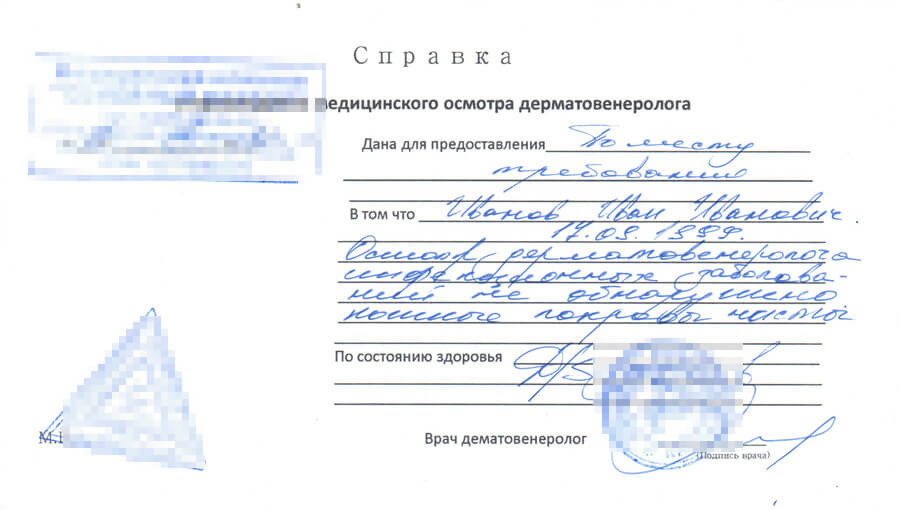 Справка
медицинского осмотра дерматовенеролога
Дана для предоставления По месту
требования
В том что Иванов Иван Иванович
17.09.1999.
Осмотр дерматовенеролога
инфекционных заболева-
ний не обнаружено
кожные покровы чисты
По состоянию здоровья
Врач дематовенеролог
(Подпись врача)